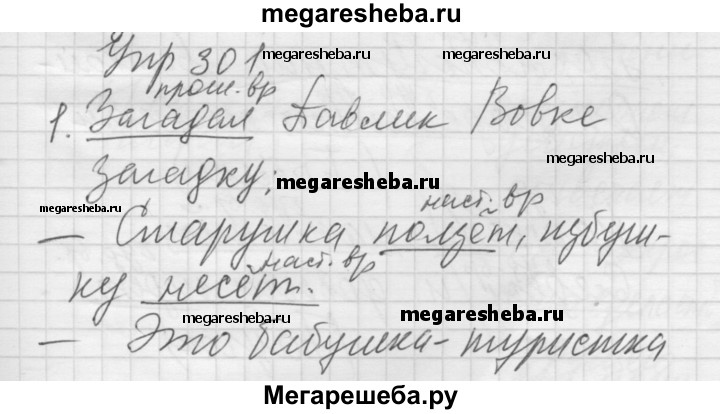 megaresheba.ru
Упр 301
megaresheba.ru megaresheba.ru
прош. вр
1. Загадал Павлик Вовке
megaresheba.ru
загадку:
megaresheba.ru
megaresheba.ru
наст. вр
— Старушка ползёт, избуш-
наст. вр
ку несёт.
megaresheba.ru megaresheba.ru
— Это бабушка-туристка
Мегарешеба.ру